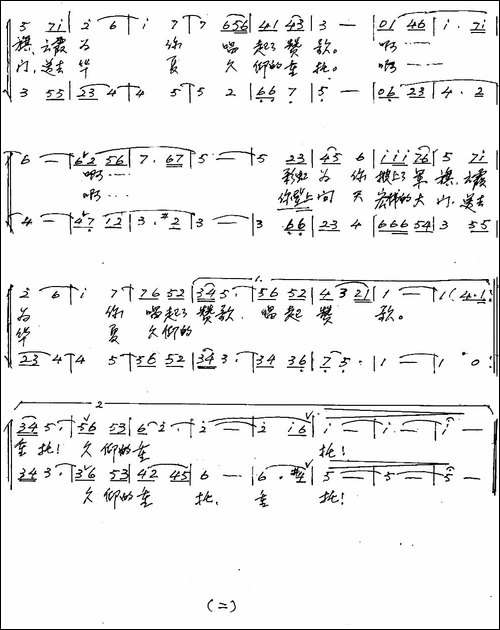 5 7i | 2 6 | i 7 | 7 656 | 41 43 | 3 — | 01 46 | i. 7i
旗,云霞为 你 唱 起了赞歌。 啊……
门,送去华 夏 久 仰的重托。 啊……
3 55 | 23 4 | 4 5 | 5 2 | 66 7 | 5 — | 06 23 | 4. 2
6 — | 62 56 | 7. 67 | 5 — | 5 23 | 45 6 | iii 76 | 5 7i
啊…… 彩虹 为 你 披上了军 旗,云霞
啊…… 你登上问 天 宏伟的大 门,送去
4 — | 47 12 | 3. #2 | 3 — | 3 66 | 23 4 | 666 54 | 3 55
1.
2 6 | i 7 | 76 52 | 34 5. | 56 52 | 4 3 21 | 1 — | 1 (4.1
为 你 唱起了 赞歌, 唱起 赞 歌。
华 夏 久仰的
23 4 | 4 5 | 56 52 | 34 3. | 34 36 | 7 5. | 1 — | 1 0
2.
34 5. | 56 53 | 6 2. | 2 — | 2 i6 | i — | i — | i —
重托! 久仰的重 托!
34 3. | 36 53 | 42 45 | 6 — | 6. #4 | 5 — | 5 — | 5 —
久仰的重 托, 重 托!
(二)